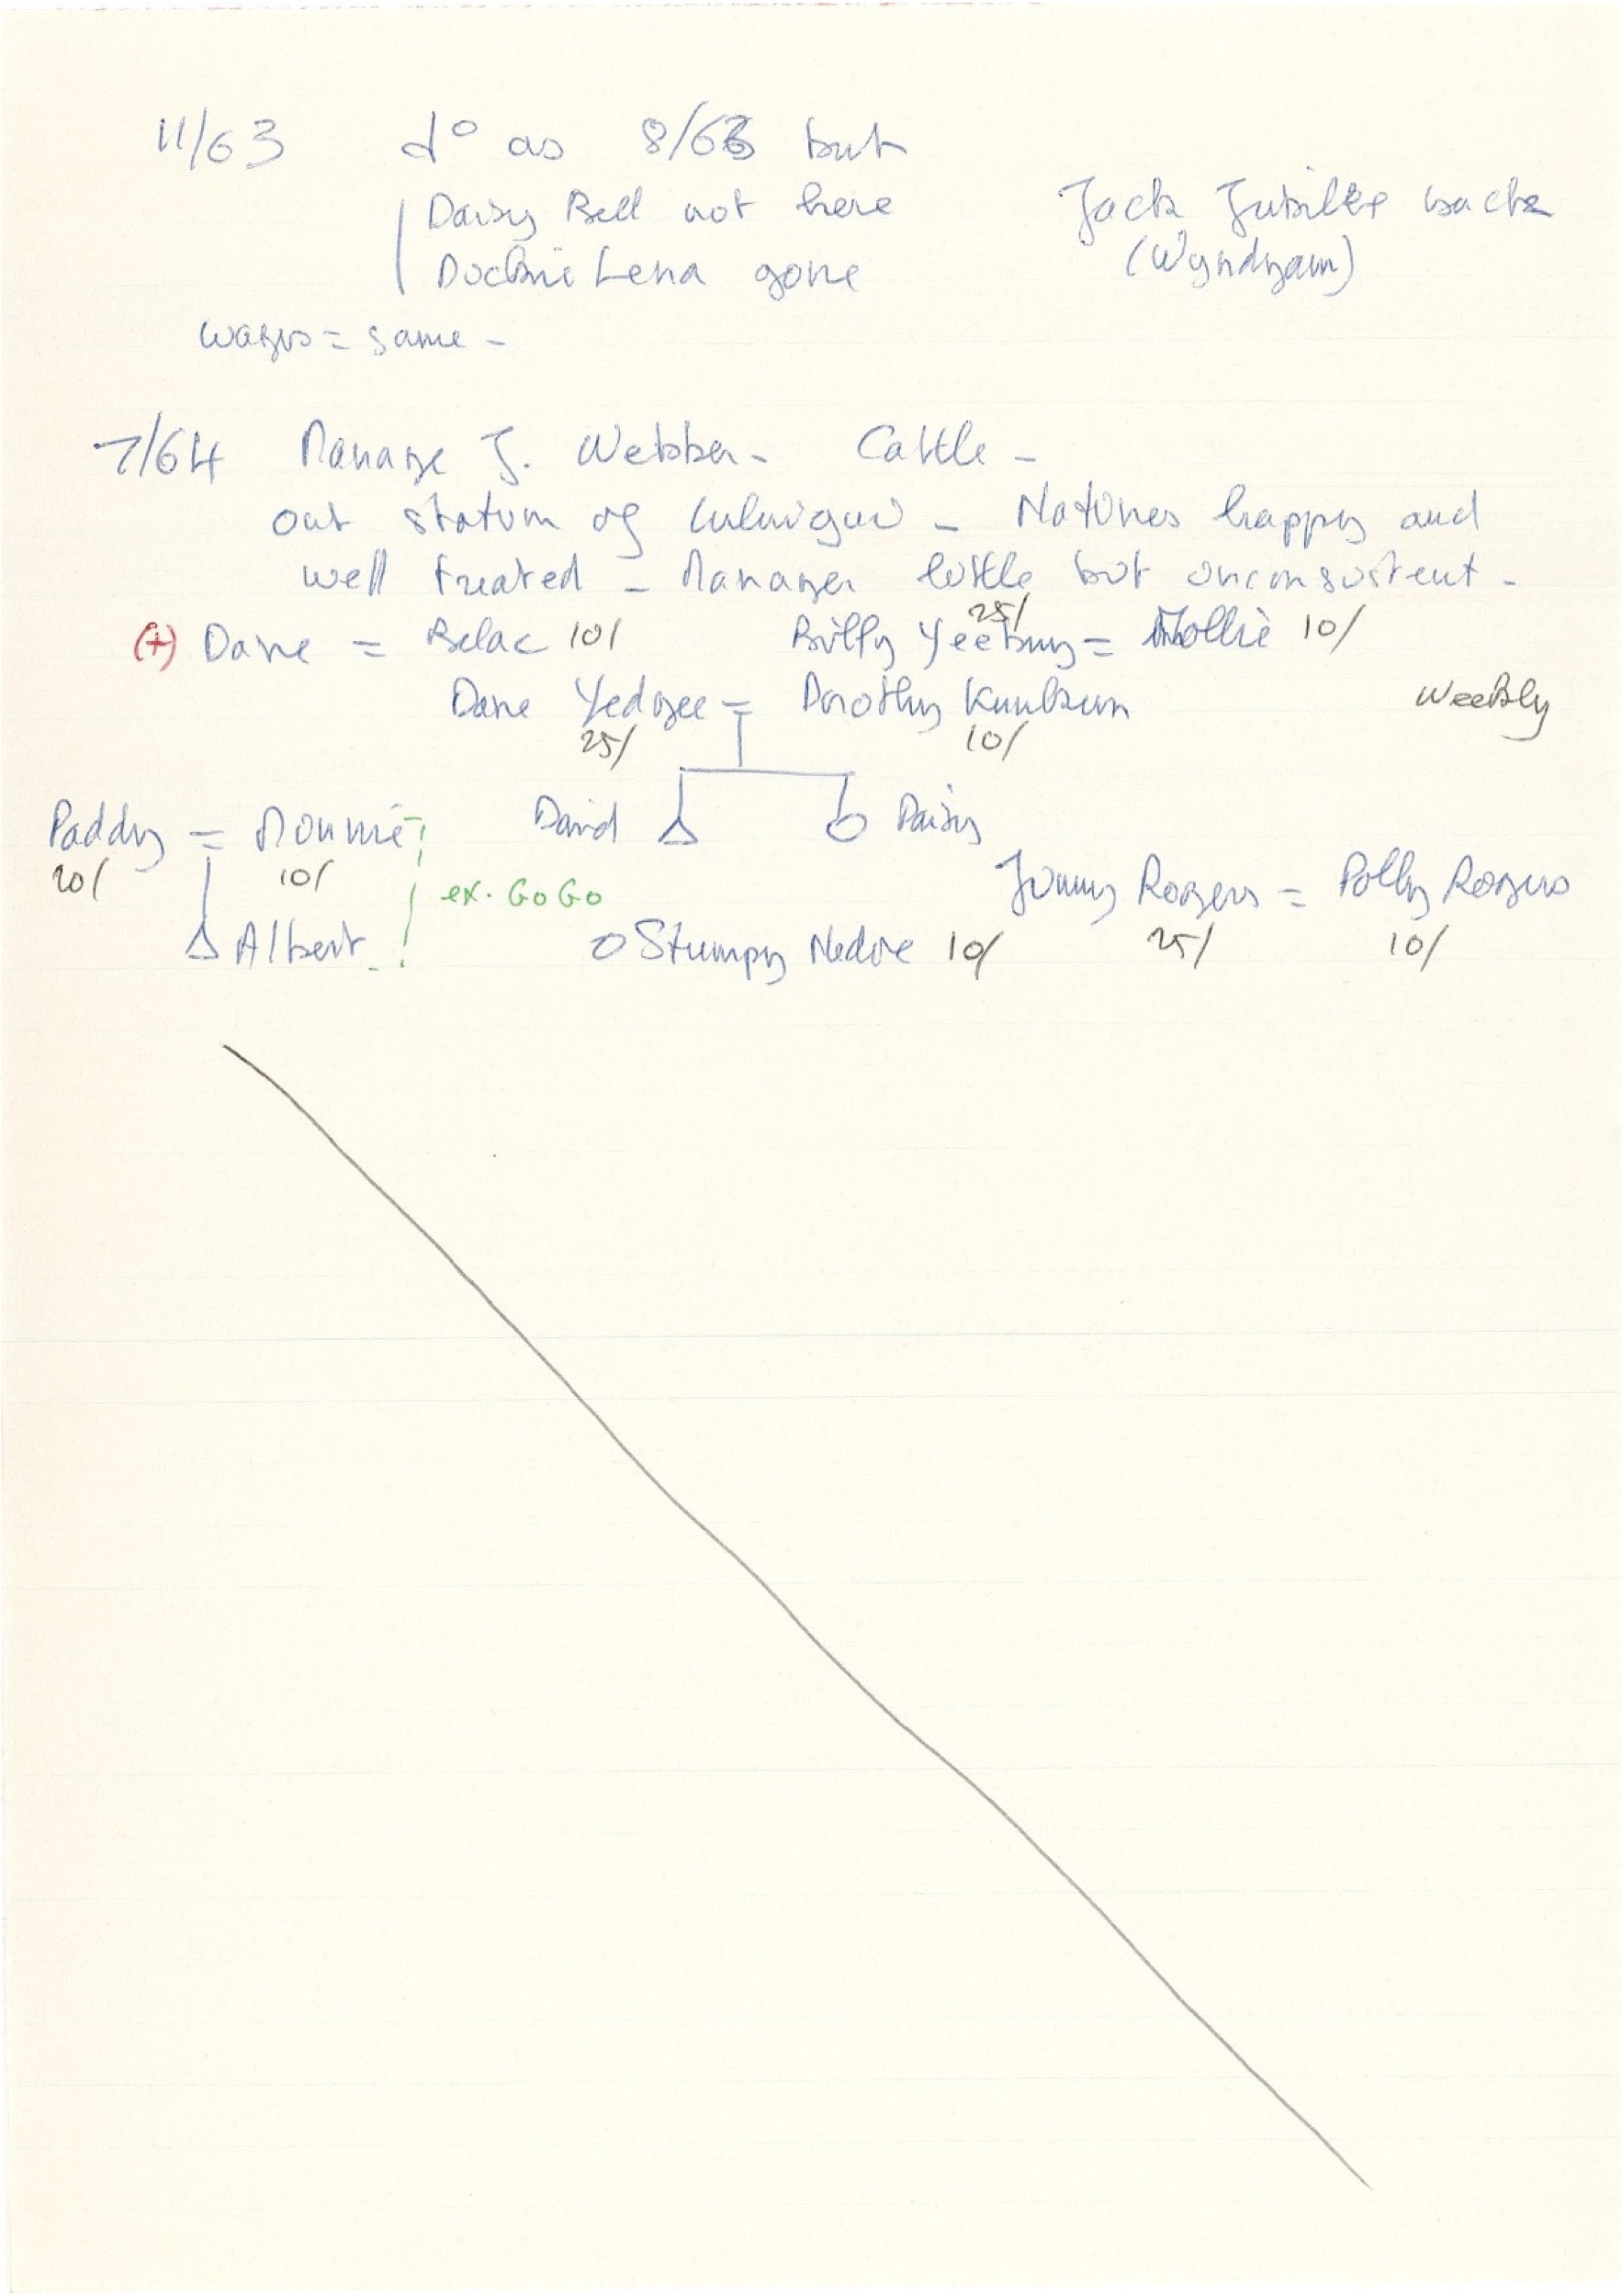 11/63 d° as 8/63 but
Daisy Bell not here Jack Jubilee back
Lena gone (Wyndham)
wages = same -
7/64 Manager J. Webber - Cattle -
out station of - Natives happy and
well treated - Manager little bit inconsistent -
(+) Dave = Belac 10/ Billy = Mollie 10/
25/
Dave Yedgee = Dorothy Weekly
25/ 10/
Paddy = Monnie David Daisy
20/ 10/ ex. GoGo Jimmy Rogers = Polly Rogers
Albert Stumpy Nedde 10/ 25/ 10/